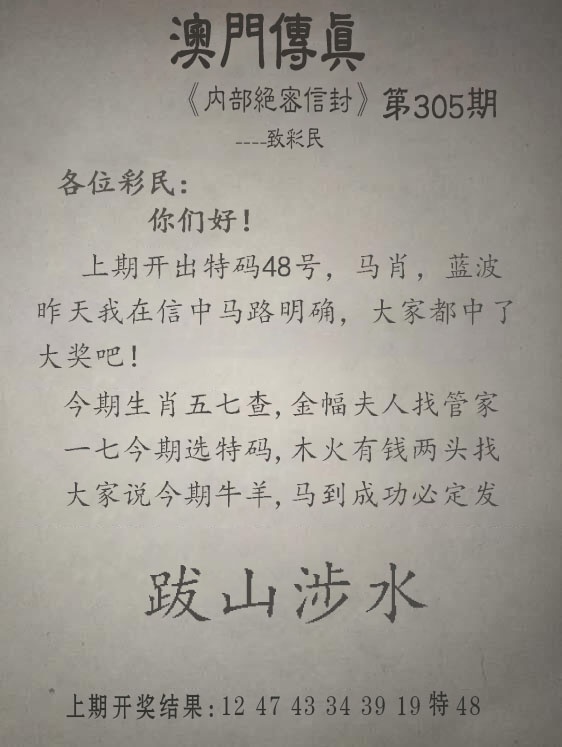 澳門傳眞
《内部絕密信封》第305期
----致彩民
各位彩民：
你们好！
上期开出特码48号，马肖，蓝波
昨天我在信中马路明确，大家都中了
大奖吧！
今期生肖五七查,金幅夫人找管家
一七今期选特码,木火有钱两头找
大家说今期牛羊,马到成功必定发
跋山涉水
上期开奖结果:12 47 43 34 39 19特48